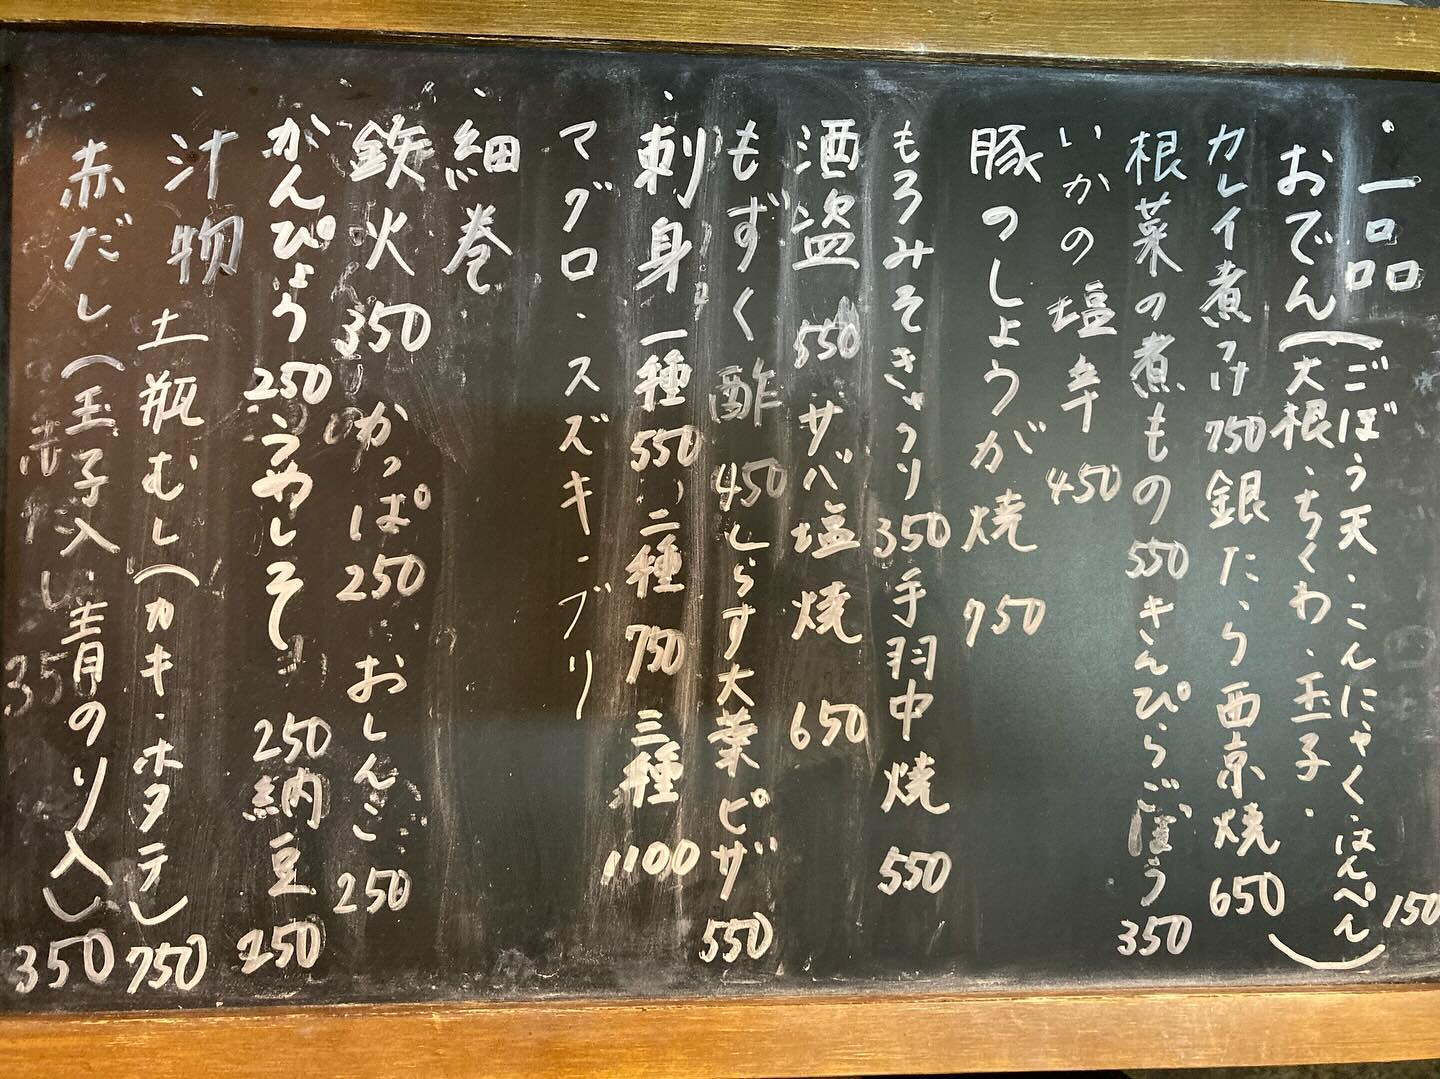 ・一品
おでん(大根・ちくわ・玉子・ごぼう天・こんにゃく・はんぺん) 150
カレイ煮つけ 750 銀だら西京焼 650
根菜の煮もの 550 きんぴらごぼう 350
いかの塩辛 450
豚のしょうが焼 750
もろみそきゅうり 350 手羽中焼 550
酒盗 550 サバ塩焼 650
もずく酢 450 しらす大葉ピザ 550
・刺身 一種 550、二種 750 三種 1100
マグロ・スズキ・ブリ
・細巻
鉄火 350 かっぱ 250 おしんこ 250
かんぴょう 250 うめしそ 250 納豆 250
・汁物 土瓶むし(カキ・ホタテ) 750
赤だし(玉子入い、青のり入) 350